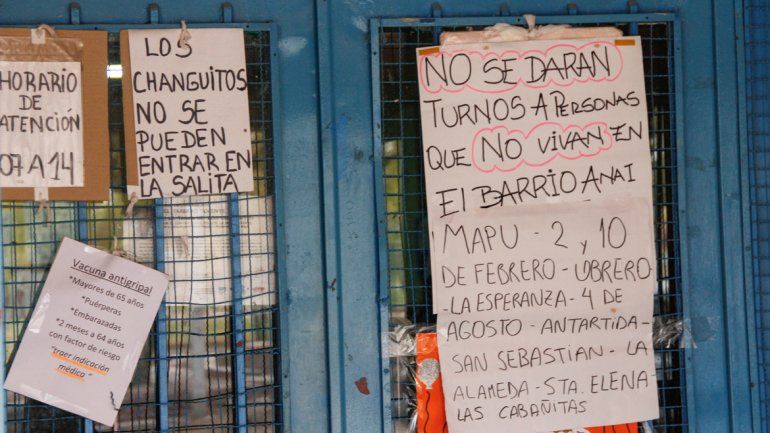 HORARIO
DE
ATENCIÓN
07 A 14
LOS
CHANGUITOS
NO SE
PUEDEN
ENTRAR EN
LA SALITA
Vacuna antigripal
*Mayores de 65 años
*Puérperas
*Embarazadas
*2 meses a 64 años
con factor de riesgo
"traer indicación
médico"
NO SE DARAN
TURNOS A PERSONAS
QUE NO VIVAN EN
El BARRIO ANAI
MAPU - 2 y 10
DE FEBRERO - OBRERO
- LA ESPERANZA - 4 DE
AGOSTO - ANTARTIDA -
SAN SEBASTIAN - LA
ALAMEDA - STA. ELENA -
LAS CABAÑITAS